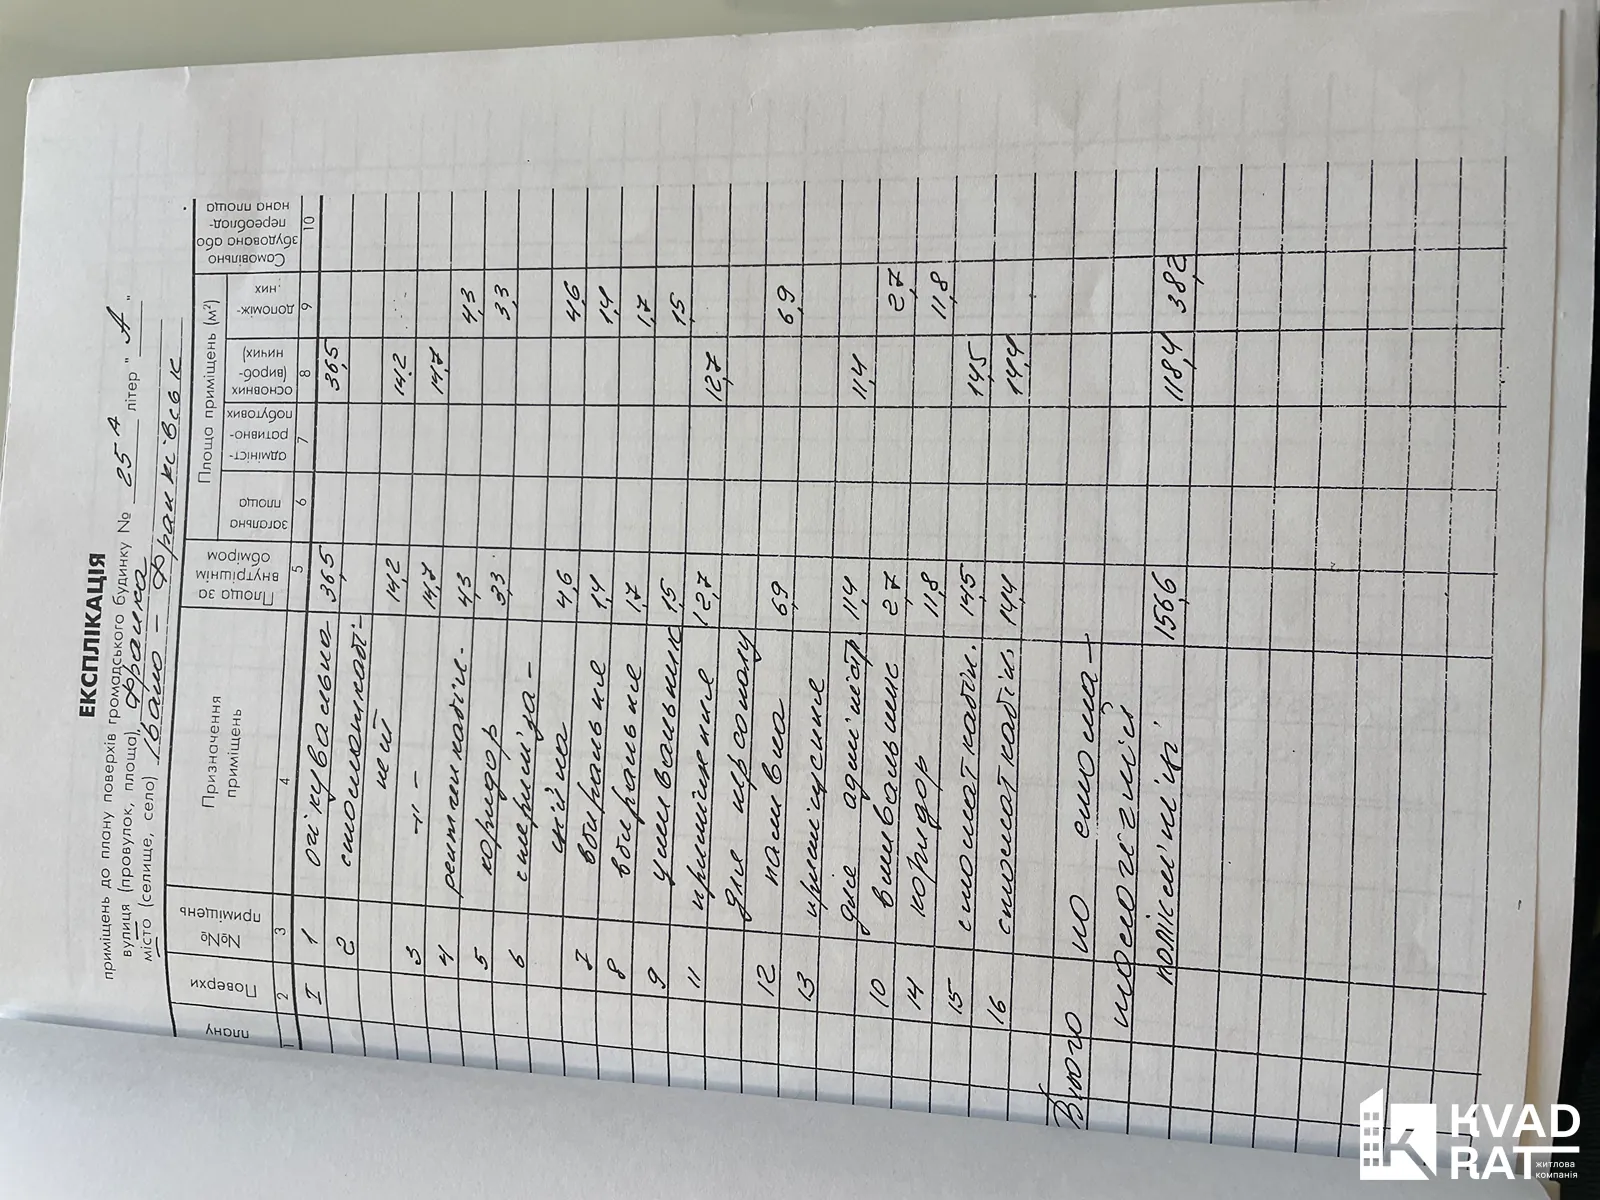 ЕКСПЛІКАЦІЯ
приміщень до плану поверхів громадського будинку № 25 А літер " А "
вулиця (провулок, площа) Франка
місто (селище, село) Івано-Франківськ
плану
Поверхи
№№ приміщень
Призначення приміщень
Площа за внутрішнім обміром
Площа приміщень (м²)
загальна площа
адміністративно-побутових
основних (виробничих)
допоміжних
Самовільно збудовано або переобладнана площа
1 2 3 4 5 6 7 8 9 10
I 1 очікувальна 36,5 36,5
2 стоматкабі-
нет 14,2 14,2
3 -"- 14,7 14,7
4 рентгенкабін. 4,3 4,3
5 коридор 3,3 3,3
6 стериліза-
ційна 4,6 4,6
7 вбиральня 1,4 1,4
8 вбиральня 1,7 1,7
9 умивальник 1,5 1,5
11 приміщення 12,7 12,7
для персоналу
12 паливна 6,9 6,9
13 приміщення
для адміністр. 11,4 11,4
10 вмивальник 2,7 2,7
14 коридор 11,8 11,8
15 стоматкабін. 14,5 14,5
16 стоматкабін. 14,4 14,4
Всього по стома-
тологічній
поліклініці 156,6 118,4 38,2
KVAD
RAT
ЖИТЛОВА
КОМПАНІЯ